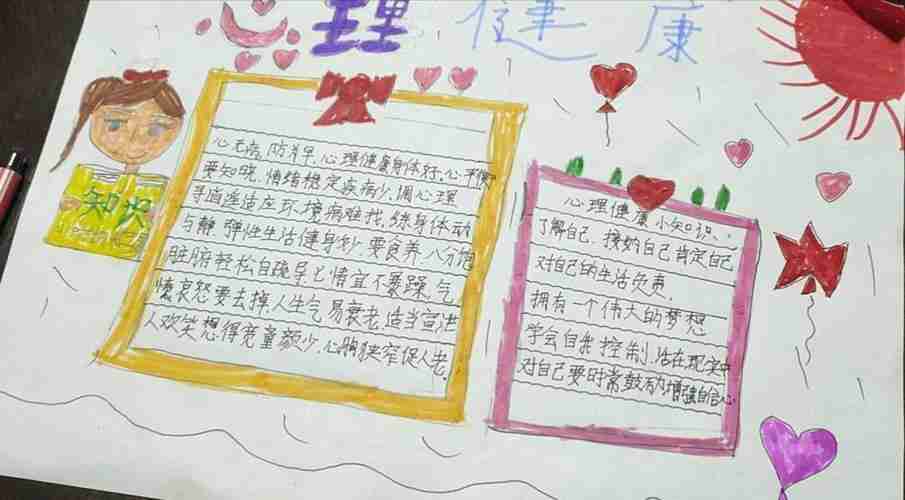 心理健康
知识
心无病,防为早,心理健康身体好,心平衡
要知晓,情绪稳定疾病少,调心理
寻追逐适应环境病难找,练身体动
与静弹性生活健身妙,要食养八分饱
脏腑轻松自疏导,七情宜不暴躁,气
怀哀怒要去掉,人生气易衰老,适当宣泄
人欢笑想得竞童颜少,心胸狭窄促人老.
心理健康小知识、
了解自己,接纳自己肯定自己
对自己的生活负责,
拥有一个伟大的梦想
学会自我控制,活在现实中
对自己要时常鼓励增强自信心